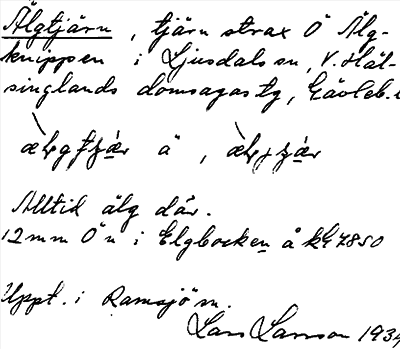 Älgtjärn, tjärn strax Ö Älg-
knippen i Ljusdals sn, V. Häl-
singlands domsagas tg, Gävleb. l
ä ,
Alltid älg där.
12 mm Ö n i Elgbocken å
Uppt. i Ramsjö sn.
Lars Larsson 1934